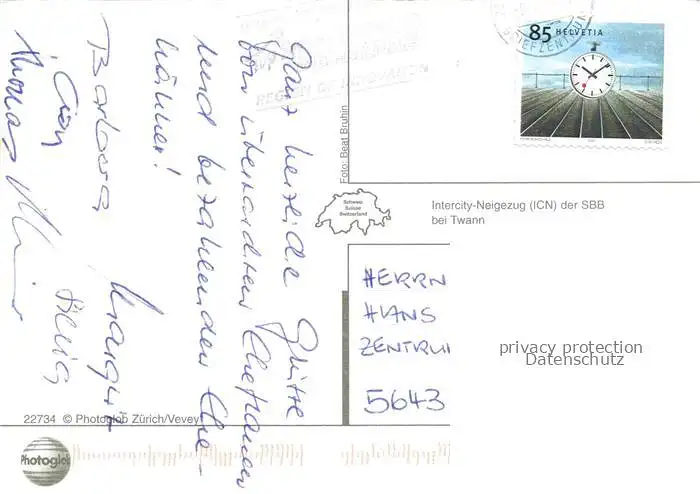 Ganz herzliche Grüsse
von überarbeiteten Ehefrauen
und bezahlenden Ehe-
männer!
Barbara
Margrit
Thomas
REGION OF INNOVATION
85 HELVETIA
BRIEFZENTRUM
Foto: Beat Bruhin
Schweiz
Suisse
Switzerland
Intercity-Neigezug (ICN) der SBB
bei Twann
HERRN
HANS
ZENTRUM
5643
privacy protection
Datenschutz
22734 © Photoglob Zürich/Vevey
Photoglob